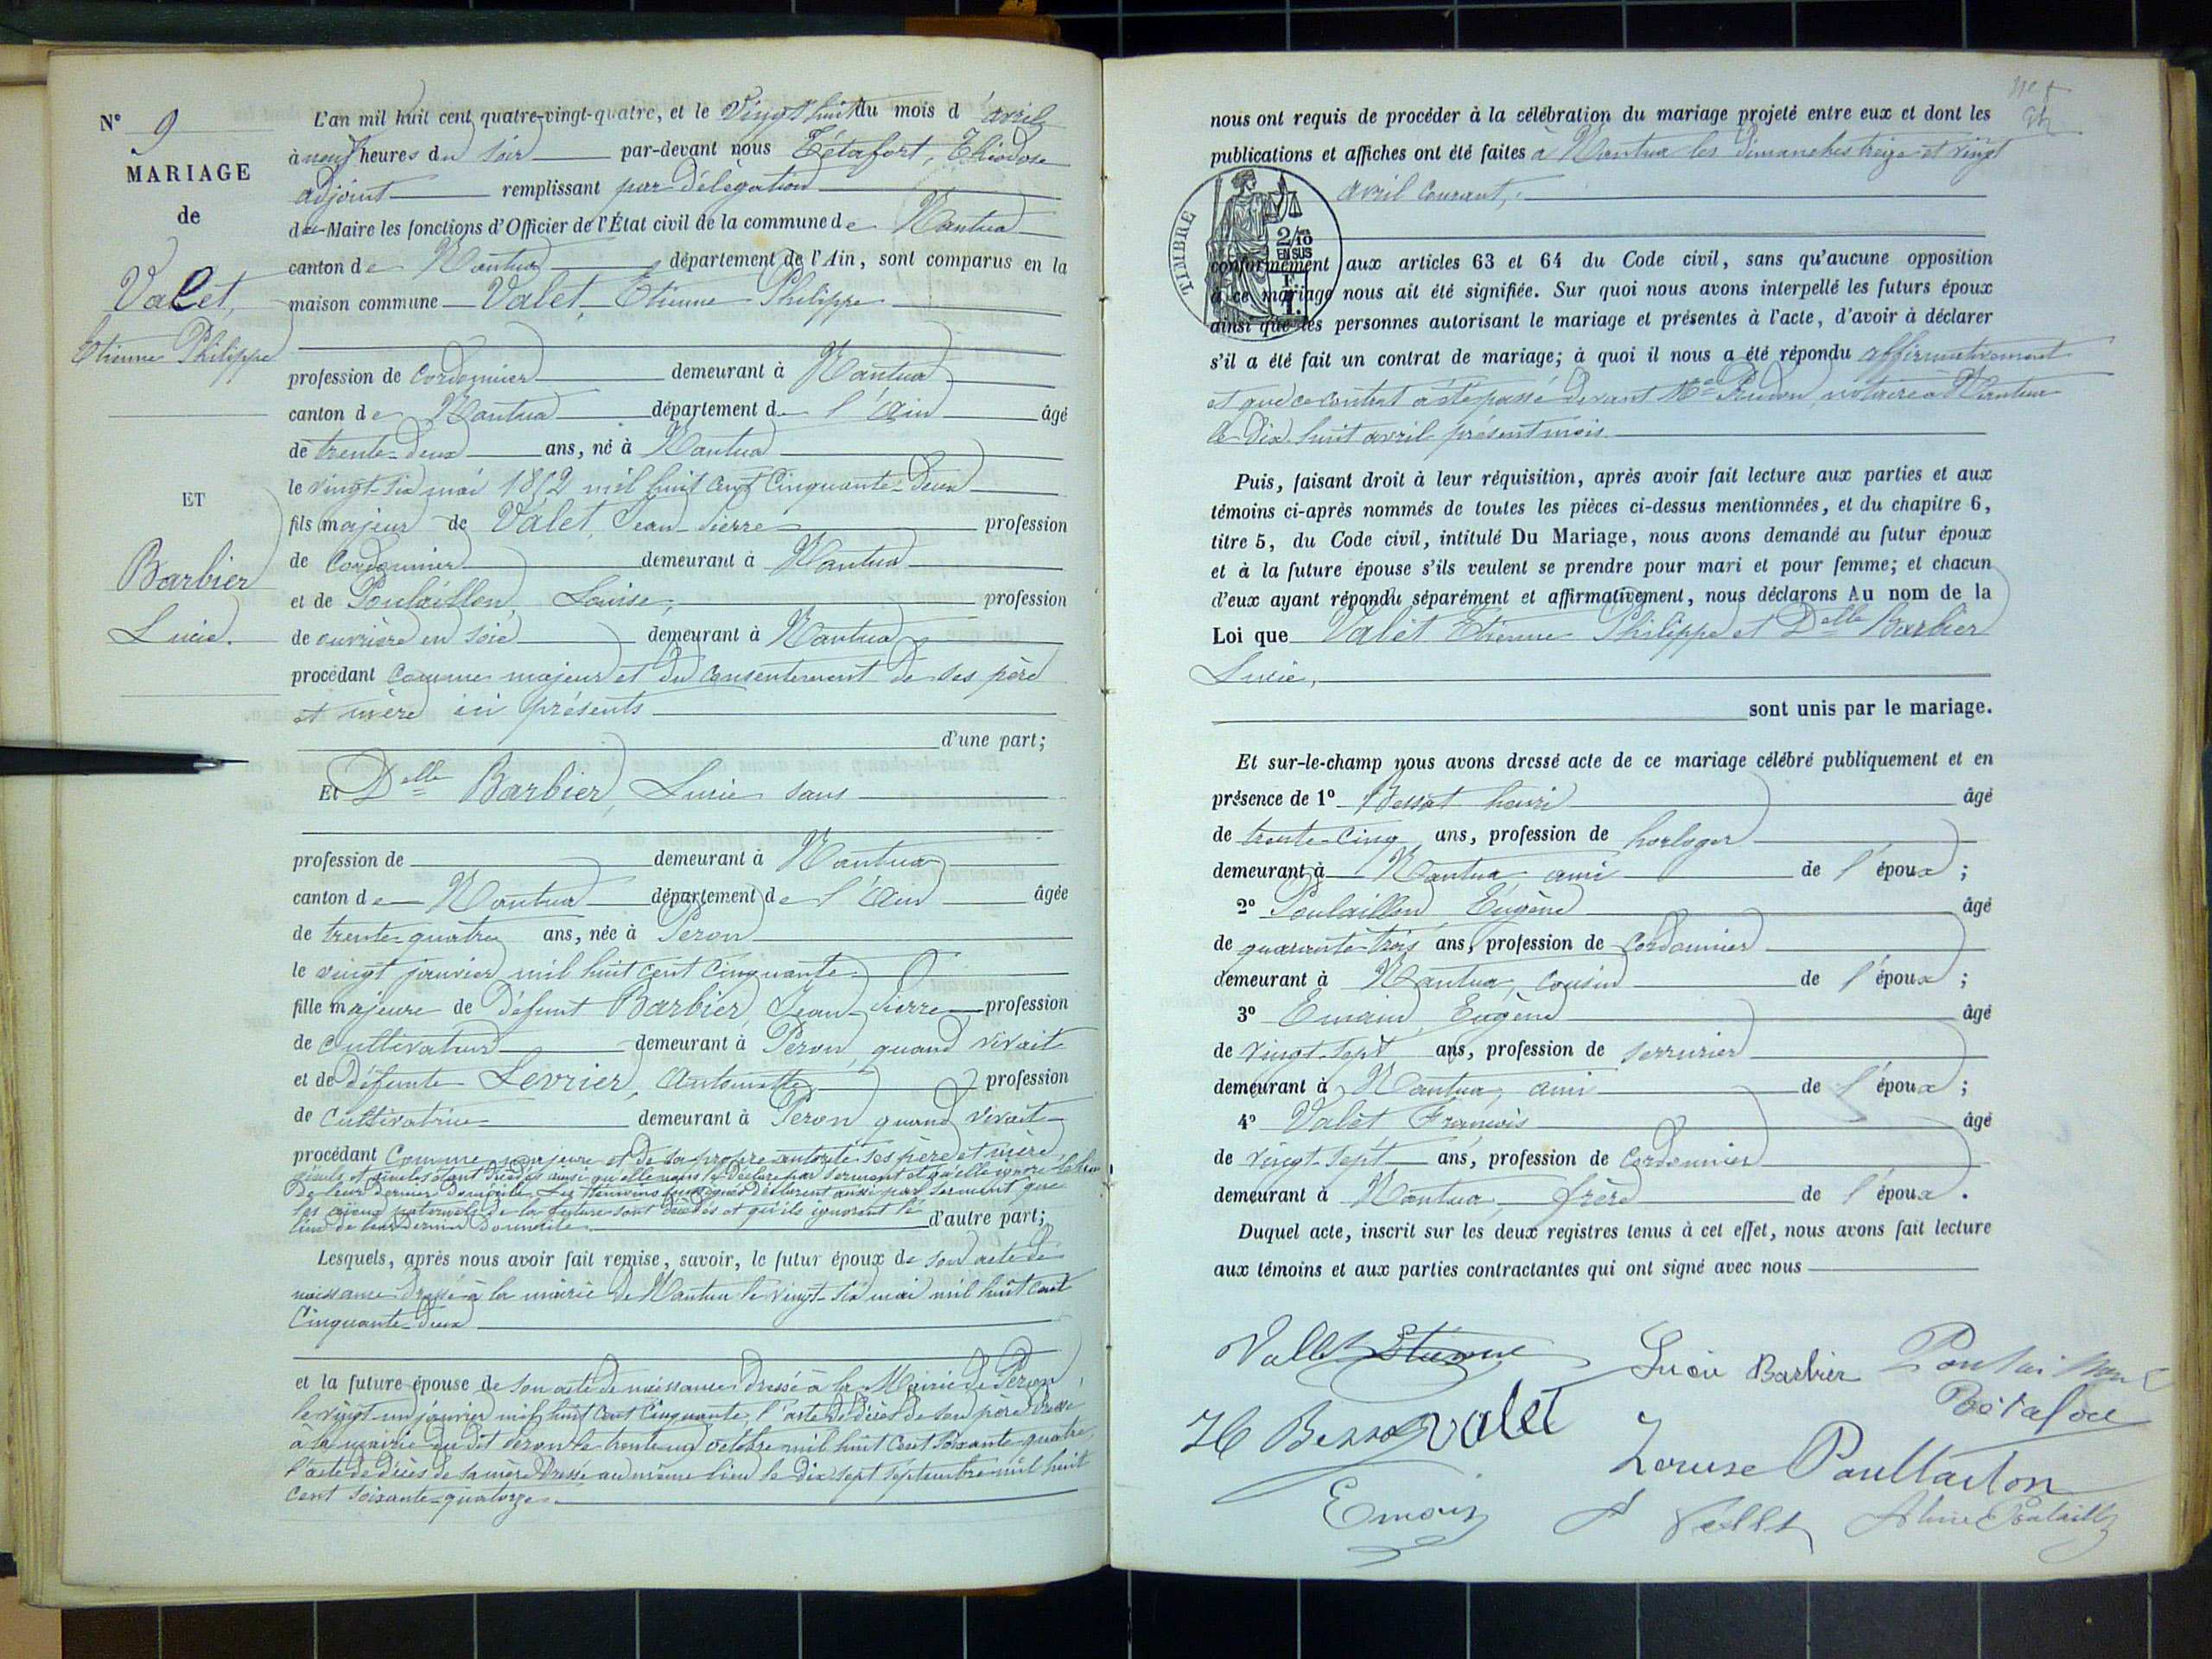 N° 9
MARIAGE
de
Valet,
Etienne Philippe
ET
Barbier
Lucie.
L'an mil huit cent quatre-vingt-quatre, et le Vingt huit du mois d'avril
à neuf heures du soir par-devant nous Tétafort, Théodose
adjoint remplissant par délégation
du Maire les fonctions d'Officier de l'État civil de la commune de Nantua
canton de Nantua département de l'Ain, sont comparus en la
maison commune Valet, Etienne Philippe
profession de Cordonnier demeurant à Nantua
canton de Nantua département de l'Ain âgé
de trente-deux ans, né à Nantua
le vingt-six mai 1852 mil huit cent Cinquante-deux
fils majeur de Valet, Jean-Pierre profession
de Cordonnier demeurant à Nantua
et de Poulaillon, Louise, profession
de ouvrière en soie demeurant à Nantua
procédant comme majeur et du consentement de ses père
et mère ici présents
d'une part;
Et Delle Barbier, Lucie sans
profession de demeurant à Nantua
canton de Nantua département de l'Ain âgée
de trente-quatre ans, née à Peron
le vingt janvier mil huit cent cinquante
fille majeure de Défunt Barbier, Jean-Pierre profession
de Cultivateur demeurant à Peron, quand vivait
et de défunte Levrier, Antoinette profession
de Cultivatrice demeurant à Peron quand vivait
procédant Comme majeure et de sa propre autorité ses père et mère,
aïeuls et aïeules étant décédés ainsi qu'elle nous le déclare par serment et qu'elle ignore le lieu
de leur dernier domicile. Les témoins soussignés déclarent aussi par serment que
les aïeux paternels de la future sont décédés et qu'ils ignorent le
lieu de leur dernier domicile d'autre part;
Lesquels, après nous avoir fait remise, savoir, le futur époux de son acte de
naissance dressé à la mairie de Nantua le vingt-six mai mil huit cent
Cinquante-deux
et la future épouse de son acte de naissance dressé à la Mairie de Peron,
le vingt un janvier mil huit cent cinquante, l'acte de décès de son père dressé
à la mairie du dit Peron le trente un octobre mil huit cent soixante quatre,
l'acte de décès de sa mère dressé au même lieu le dix sept septembre mil huit
cent soixante-quatorze.
nous ont requis de procéder à la célébration du mariage projeté entre eux et dont les
publications et affiches ont été faites à Nantua les dimanches treize et vingt
avril courant,
TIMBRE
2/10
EN SUS
conformément aux articles 63 et 64 du Code civil, sans qu'aucune opposition
à ce mariage nous ait été signifiée. Sur quoi nous avons interpellé les futurs époux
ainsi que les personnes autorisant le mariage et présentes à l'acte, d'avoir à déclarer
s'il a été fait un contrat de mariage; à quoi il nous a été répondu affirmativement
et que ce contrat a été passé devant Me Prudon, notaire à Nantua
le dix huit avril présent mois.
Puis, faisant droit à leur réquisition, après avoir fait lecture aux parties et aux
témoins ci-après nommés de toutes les pièces ci-dessus mentionnées, et du chapitre 6,
titre 5, du Code civil, intitulé Du Mariage, nous avons demandé au futur époux
et à la future épouse s'ils veulent se prendre pour mari et pour femme; et chacun
d'eux ayant répondu séparément et affirmativement, nous déclarons Au nom de la
Loi que Valet Etienne Philippe et Delle Barbier
Lucie,
sont unis par le mariage.
Et sur-le-champ nous avons dressé acte de ce mariage célébré publiquement et en
présence de 1° Bessat henri âgé
de trente-cinq ans, profession de horloger
demeurant à Nantua ami de l'époux;
2° Poulaillon Eugène âgé
de quarante-trois ans, profession de Cordonnier
demeurant à Nantua, cousin de l'époux;
3° Emain, Eugène âgé
de vingt-sept ans, profession de serrurier
demeurant à Nantua, ami de l'époux;
4° Valet François âgé
de vingt-sept ans, profession de Cordonnier
demeurant à Nantua, frère de l'époux.
Duquel acte, inscrit sur les deux registres tenus à cet effet, nous avons fait lecture
aux témoins et aux parties contractantes qui ont signé avec nous
Vallet Etienne Lucie Barbier
H Bessat valet
Louise Poullaillon
Emain